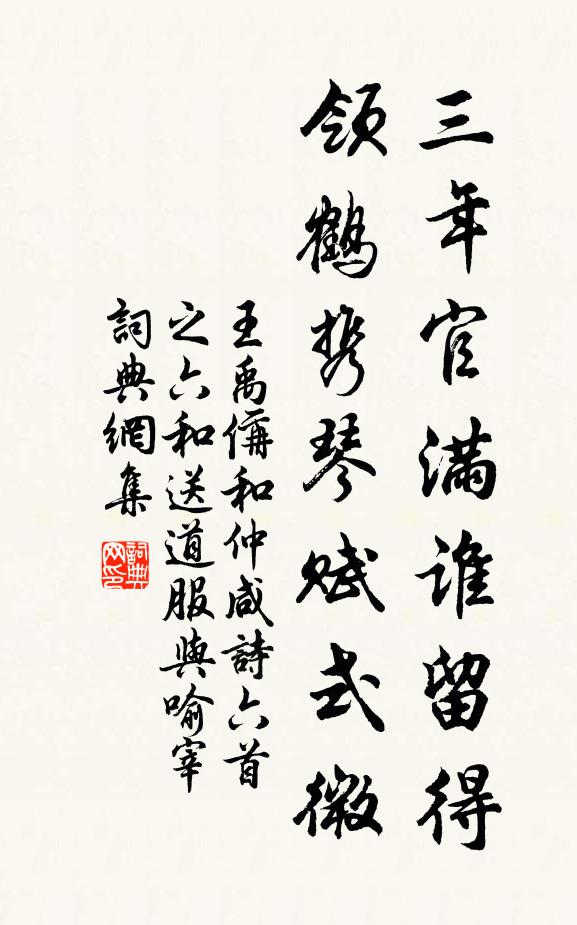 三年官满谁留得
领鹤携琴赋式微
王禹偁和仲咸詩六首
之六和送道服與喻宰
詞典網集
詞典网印